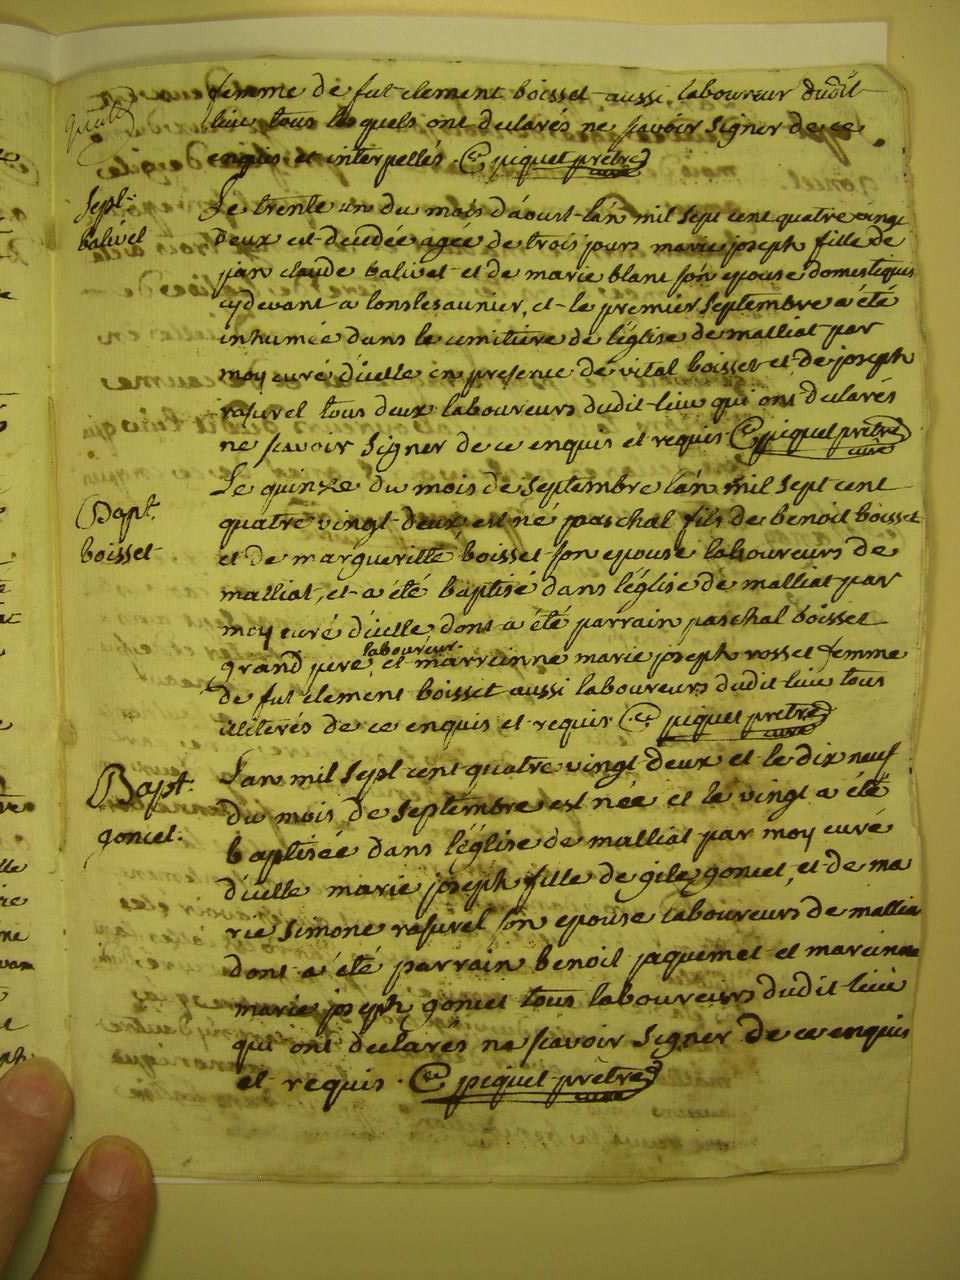 femme de fut clement boisset aussi laboureur dudit
lieu tous lesquels ont declarés ne scavoir signer de ce
enquis et interpellés. piquet prêtre
curé
Sept.
balivet
Le trente un du mois d'aoust l'an mil sept cent quatre vingt
deux est decedée agée de trois jours marie joseph fille de
jean claude balivet et de marie blanc son epouse domestiques
cydevant a lonslesaunier, et le premier septembre a été
inhumée dans le cimitiere de l'église de malliat par
moy curé d'icelle en presence de vital boisset et de joseph
rasurel tous deux laboureurs dudit lieu qui ont declarés
ne scavoir signer de ce enquis et requis piquet prêtre
curé
Bapt.
boisset
Le quinze du mois de septembre l'an mil sept cent
quatre vingt deux est né paschal fils de benoit boisset
et de margueritte boisset son epouse laboureurs de
malliat, et a été baptisé dans l'église de malliat par
moy curé d'icelle dont a été parrain paschal boisset
laboureur
grand pere, et marreinne marie joseph rosset femme
de fut clement boisset aussi laboureurs dudit lieu tous
illiterés de ce enquis et requis piquet prêtre
curé
Bapt.
goncet.
L'an mil sept cent quatre vingt deux et le dix neuf
du mois de septembre est née et le vingt a été
baptisée dans l'église de malliat par moy curé
d'icelle marie joseph fille de gile goncet, et de ma
rie simone rasurel son epouse laboureurs de malliat
dont a été parrain benoit jaquemet et mareinne
marie joseph goncet tous laboureurs dudit lieu
qui ont declarés ne scavoir signer de ce enquis
et requis. piquet prêtre
curé